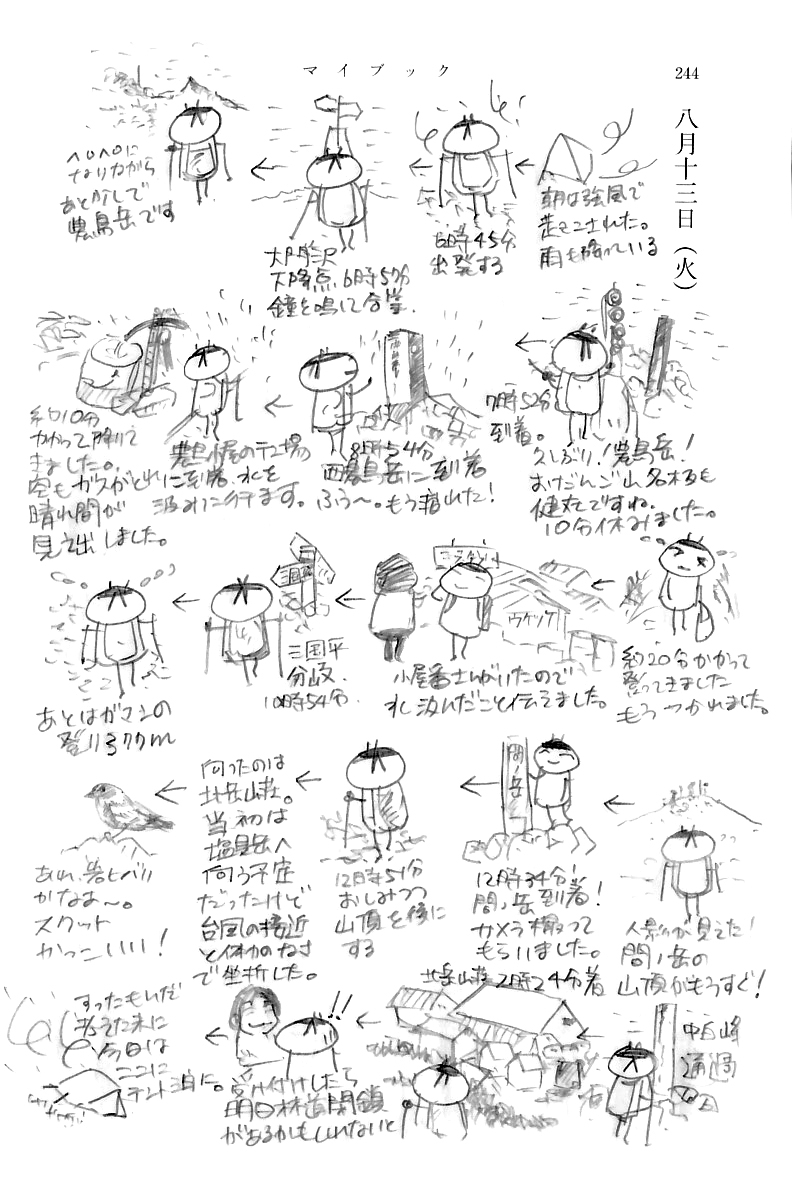 マイブック
244
八月十三日(火)
朝は強風で
起こされた。
雨も降っている
6時45分
出発する
大門沢
下降点 6時57分
鐘を鳴して合掌.
ヘロヘロに
なりながら
あと少しで
農鳥岳です
7時52分
到着。
久しぶり!農鳥岳!
おだんご山名板も
健在ですね.
10分休みました。
8時54分
西農鳥岳に到着
ふぅ〜。もう疲れた!
農鳥小屋のテン場
に到着.水を
汲みに行きます。
約10分
かかって降りて
きました。
空もガスがとれ
晴れ間が
見え出しました。
約20分かかって
登ってきました
もうつかれました。
ウケツケ
小屋番さんがいたので
水汲んだこと伝えました。
三国平
分岐.
10時54分.
あとはガマンの
登り377m
人影が見えた!
間ノ岳の
山頂がもうすぐ!
間ノ岳
12時34分!
間ノ岳到着!
カメラ撮って
もらいました。
12時51分
おしみつつ
山頂を後に
する
向ったのは
北岳山荘。
当初は
塩見岳へ
向う予定
だったけど
台風の接近
と体力のなさ
で挫折した。
あれ、岩ヒバリ
かなぁ〜。
スクット
かっこいい!
中白峰
通過
北岳山荘 2時24分着
!!
受け付けしたら
明日林道閉鎖
があるかもしれないと
すったもんだ
考えた末に
今日は
ここに
テント泊に。